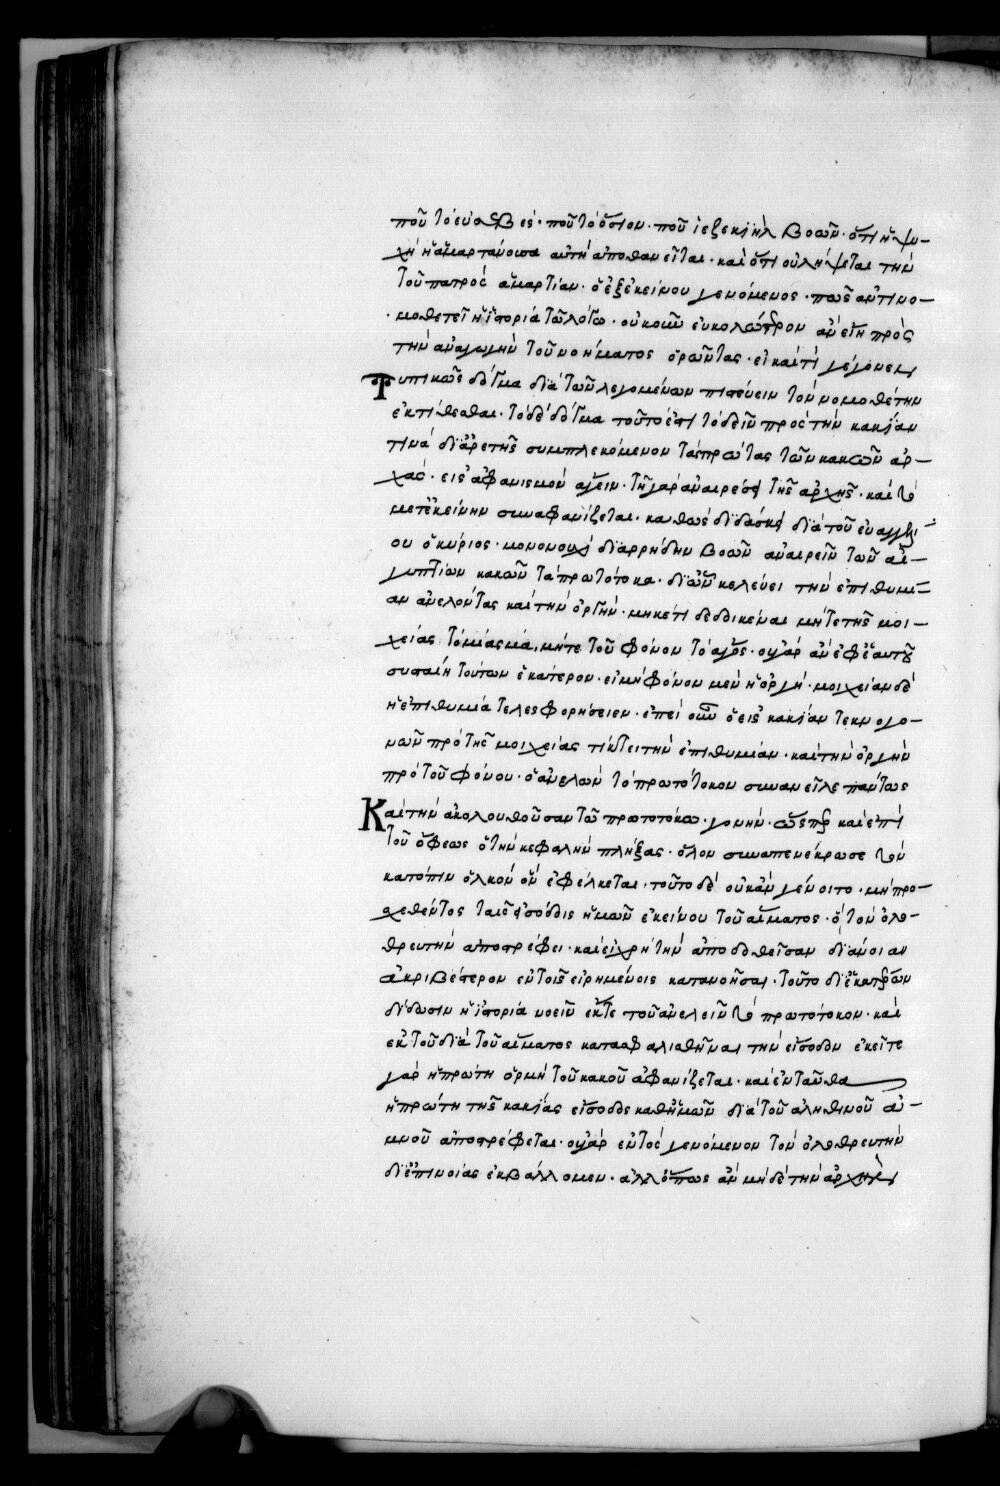 ποῦ τὸ εὐσεβές· ποῦ τὸ ὅσιον· ποῦ ἰεζεκιὴλ βοῶν· ὅτι ἡ ψυ-
χὴ ἡ ἁμαρτάνουσα αὐτὴ ἀποθανεῖται· καὶ ὅτι οὐ λήψεται τὴν
τοῦ πατρὸς ἁμαρτίαν· ὁ ἐξ ἐκείνου γενόμενος· πῶς ἀντινο-
μοθετεῖ ἡ ἱστορία τῶ λόγω· οὐκοῦν εὐκολώτερον ἂν εἴη πρὸς
τὴν ἀναγωγὴν τοῦ νοήματος ὁρῶντας· εἰ καί τι γέγονεν
Τυπικῶς δόγμα διὰ τῶν λεγομένων πιστεύειν τὸν νομοθέτην
ἐκτίθεσθαι· τὸ δὲ δόγμα τοῦτό ἐστι τὸ δεῖν πρὸς τὴν κακίαν
τινὰ δι ἀρετῆς συμπλεκόμενον τὰς πρώτας τῶν κακῶν ἀρ-
χὰς· εἰς ἀφανισμὸν ἄγειν· τῆ γὰρ ἀναιρέσει τῆς ἀρχῆς· καὶ τὸ
μετ ἐκείνην συναφανίζεται· καθὼς διδάσκει διὰ τοῦ εὐαγγελί-
ου ὁ κύριος· μονονουχὶ διαρρήδην βοῶν ἀναιρεῖν τῶν αἰ-
γυπτίων κακῶν τὰ πρωτότοκα· δι ὧν κελεύει τὴν ἐπιθυμί-
αν ἀνελόντας καὶ τὴν ὀργὴν· μηκέτι δεδοικέναι μήτε τῆς μοι-
χείας τὸ μίασμα, μήτε τοῦ φόνου τὸ ἄγος· οὐ γὰρ ἂν ἐφ ἑαυτοῦ
συσταίη τούτων ἑκάτερον· εἰ μὴ φόνον μὲν ἡ ὀργὴ· μοιχείαν δὲ
ἡ ἐπιθυμία τελεσφορήσειεν· ἐπεὶ οὖν ὁ εἰς κακίαν τεκνογο-
νῶν πρὸ τῆς μοιχείας τίκτει τὴν ἐπιθυμίαν· καὶ τὴν ὀργὴν
πρὸ τοῦ φόνου· ὁ ἀνελὼν τὸ πρωτότοκον συνανεῖλε πάντως
Καὶ τὴν ἀκολουθοῦσαν τῶ πρωτοτόκω· γονὴν· ὥσπερ καὶ ἐπὶ
τοῦ ὄφεως ὁ τὴν κεφαλὴν πλήξας· ὅλον συναπενέκρωσε τὸν
κατόπιν ὁλκὸν ὃν ἐφέλκεται· τοῦτο δὲ οὐκ ἂν γένοιτο· μὴ προ-
χεθέντος ταῖς εἰσόδοις ἡμῶν ἐκείνου τοῦ αἵματος· ὃ τὸν ὀλο-
θρευτὴν ἀποστρέφει· καὶ εἰ χρὴ τὴν ἀποδοθεῖσαν διάνοιαν
ἀκριβέστερον ἐν τοῖς εἰρημένοις κατανοῆσαι· τοῦτο δι ἑκατέρων
δίδωσιν ἡ ἱστορία νοεῖν ἔκ τε τοῦ ἀνελεῖν τὸ πρωτότοκον· καὶ
ἐκ τοῦ διὰ τοῦ αἵματος κατασφαλισθῆναι τὴν εἴσοδον ἐκεῖ τε
γὰρ ἡ πρώτη ὁρμὴ τοῦ κακοῦ ἀφανίζεται· καὶ ἐνταῦθα
ἡ πρώτη τῆς κακίας εἴσοδος καθ ἡμῶν διὰ τοῦ ἀληθινοῦ ἀ-
μνοῦ ἀποστρέφεται· οὐ γὰρ ἐντὸς γενόμενον τὸν ὀλοθρευτὴν
δι ἐπινοίας ἐκβάλλομεν· ἀλλ ὅπως ἂν μὴ δὲ τὴν ἀρχὴν